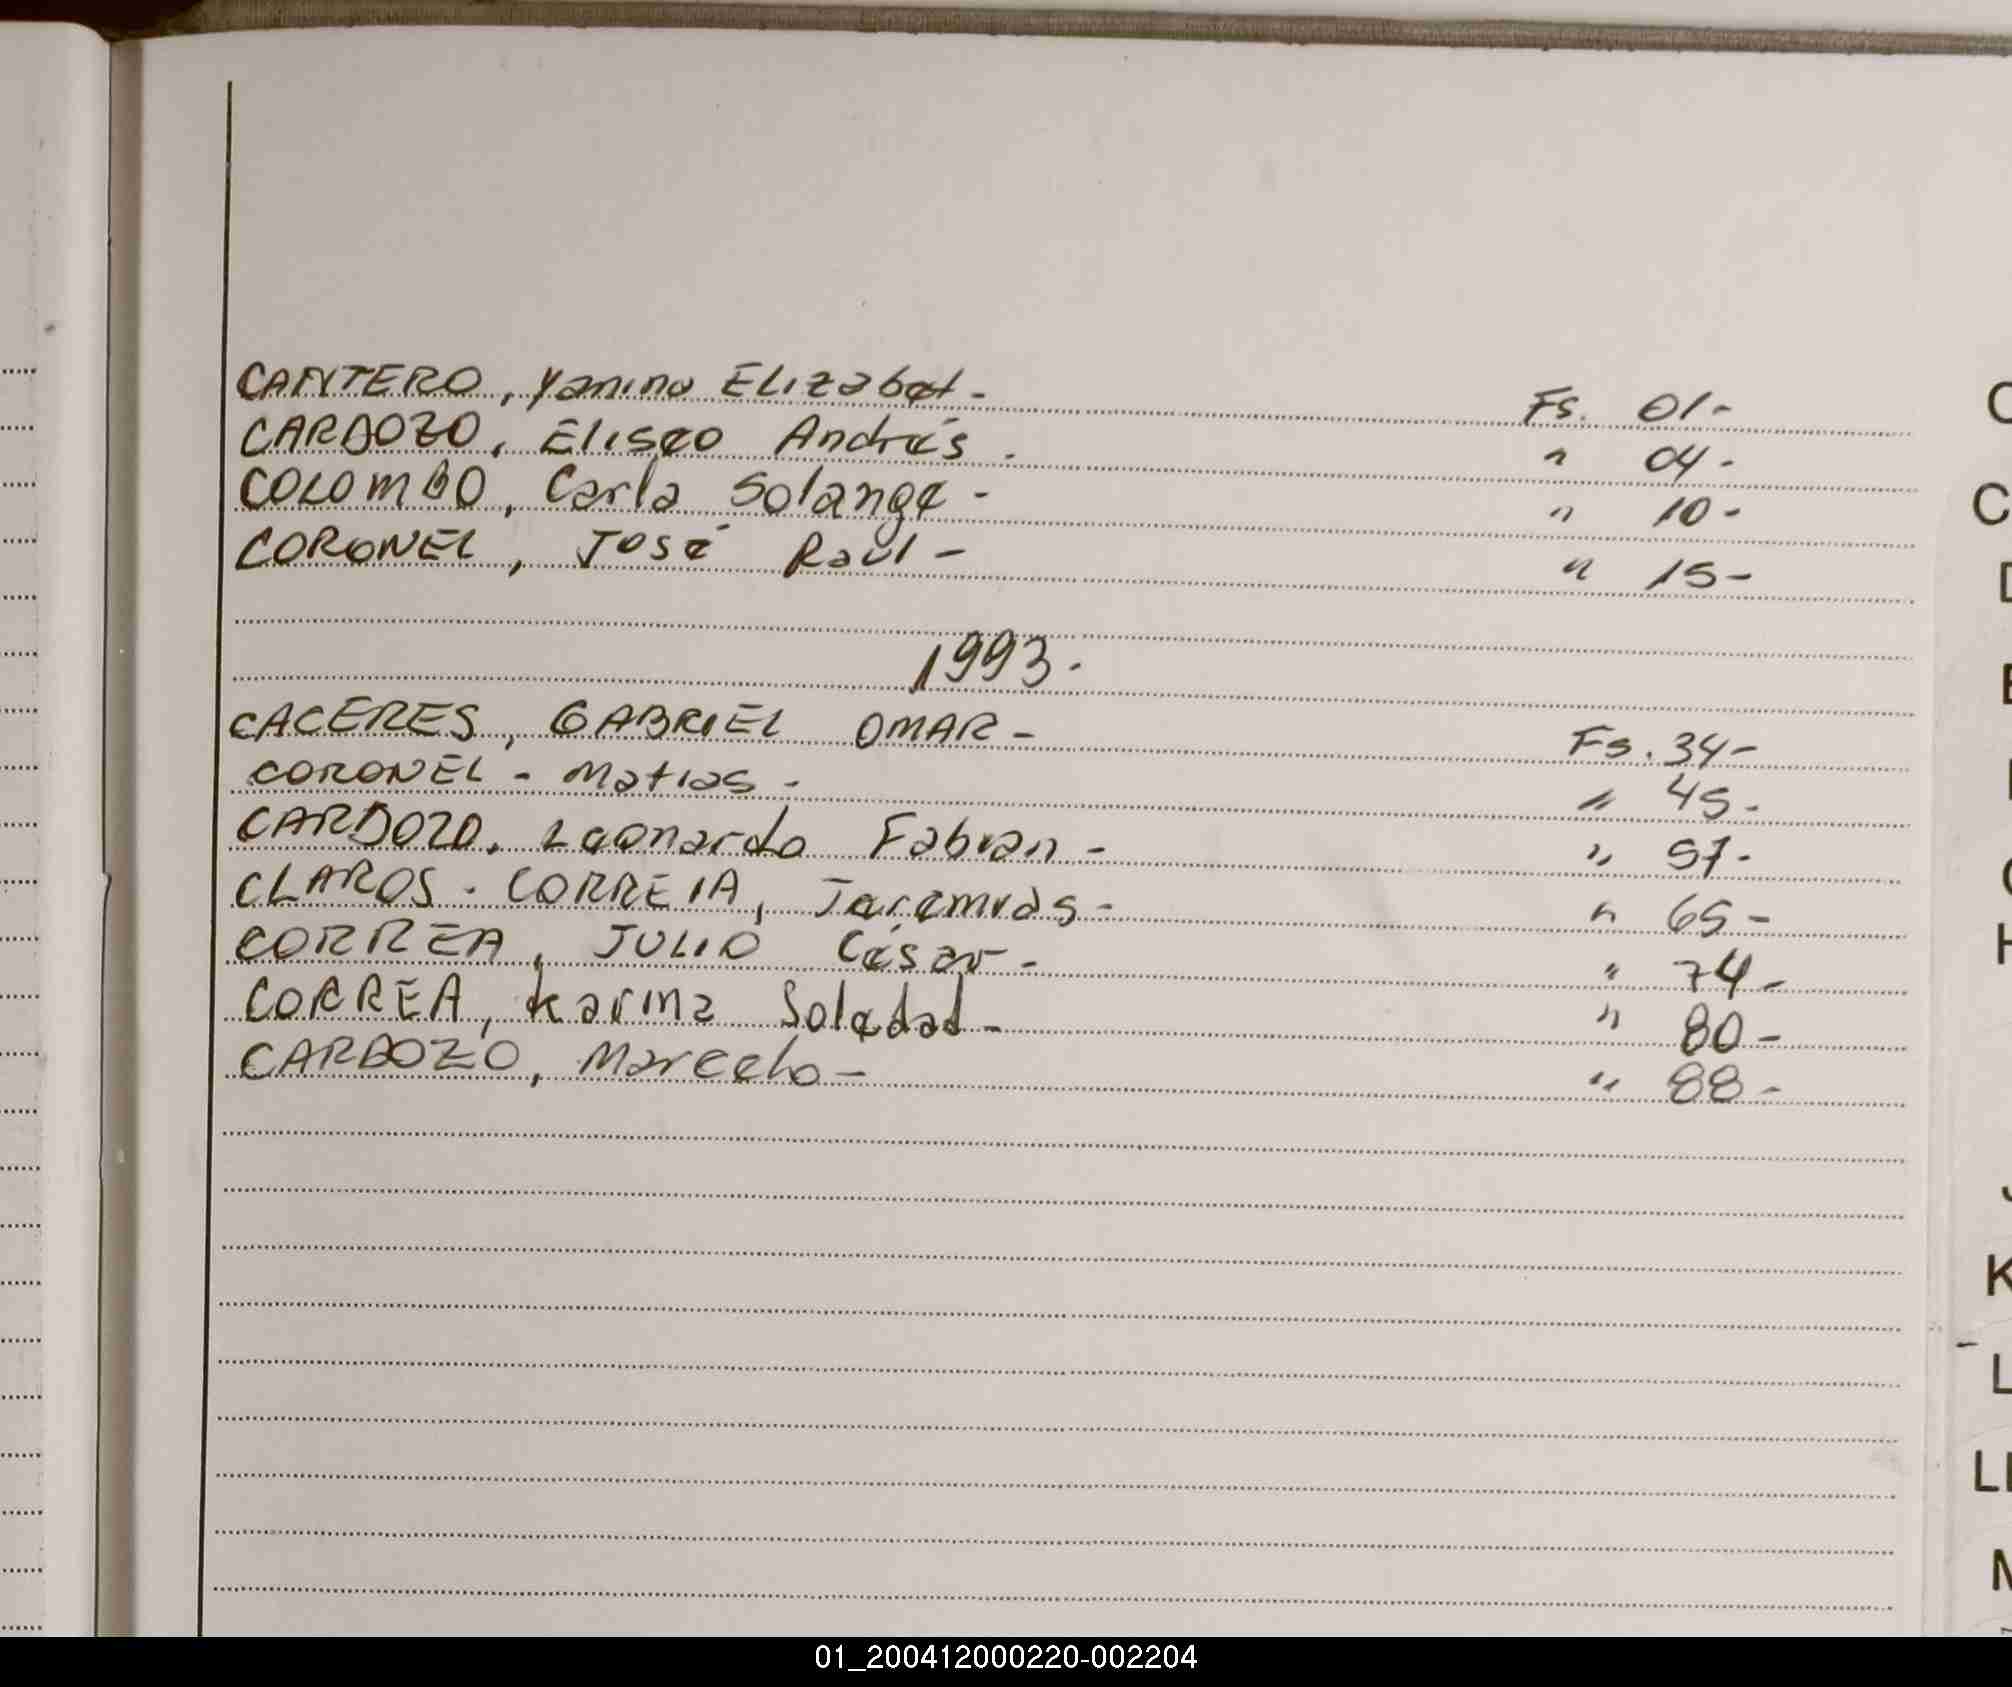 CANTERO, Yanina Elizabet - Fs. 01 -
CARDOZO, Eliseo Andrés . " 04 -
COLOMBO, Carla Solange - " 10 -
CORONEL, José Raúl - " 15 -
1993 .
CACERES, GABRIEL OMAR - Fs. 34 -
CORONEL - Matias - " 45 -
CARDOZO, Leonardo Fabian - " 57 -
CLAROS - CORREIA, - " 65 -
CORREA, JULIO César - " 74 -
CORREA, Karina Soledad - " 80 -
CARDOZO, Marcelo - " 88 -
C
C
D
E
H
J
K
L
LL
M
01_200412000220-002204